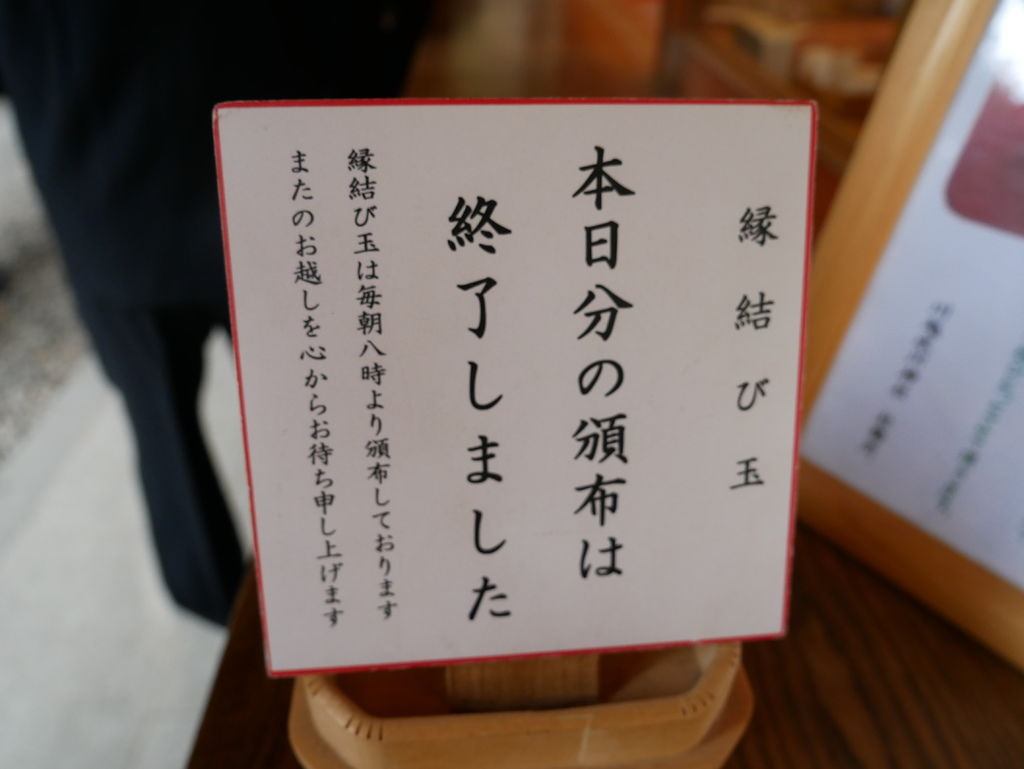 縁結び玉
本日分の頒布は
終了しました
縁結び玉は毎朝八時より頒布しております
またのお越しを心からお待ち申し上げます